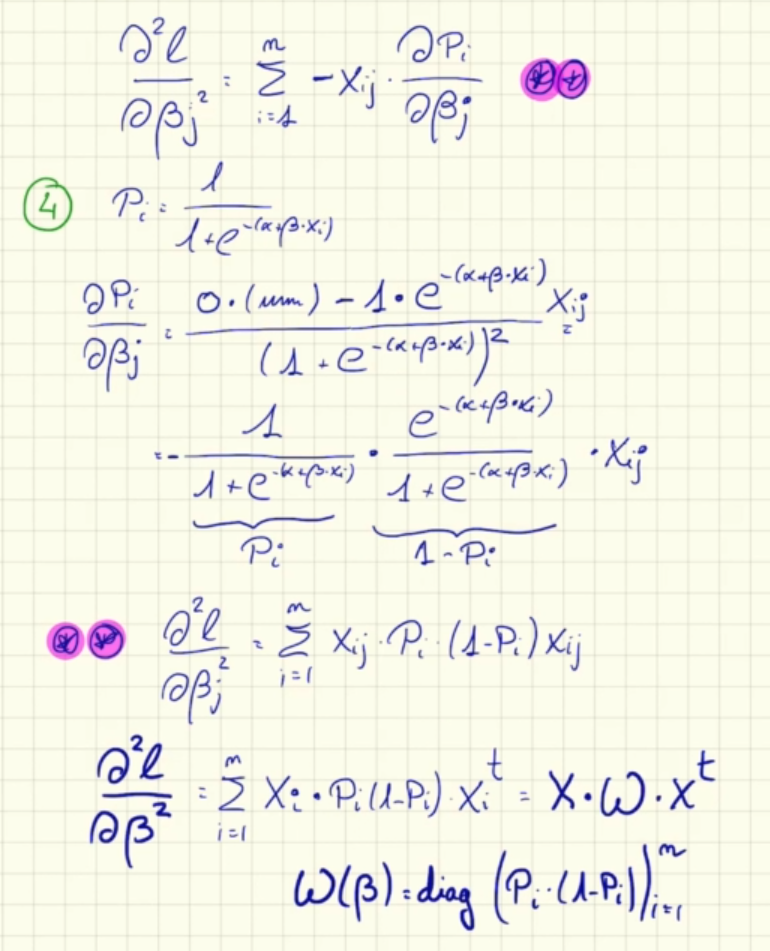 ∂²l/∂βj² = Σ_{i=1}^{n} -Xij · ∂Pi/∂βj ⊛⊛
④ Pi = 1/(1+e^{-(α+β·Xi)})
∂Pi/∂βj = (0·(mm) - 1·e^{-(α+β·Xi)} Xij)/(1+e^{-(α+β·Xi)})² =
= - 1/(1+e^{-(α+β·Xi)}) · e^{-(α+β·Xi)}/(1+e^{-(α+β·Xi)}) · Xij
Pi 1-Pi
⊛⊛ ∂²l/∂βj² = Σ_{i=1}^{n} Xij · Pi · (1-Pi) Xij
∂²l/∂β² = Σ_{i=1}^{n} Xi · Pi(1-Pi) · Xi^t = X·W·X^t
W(β) = diag (Pi·(1-Pi))_{i=1}^{n}